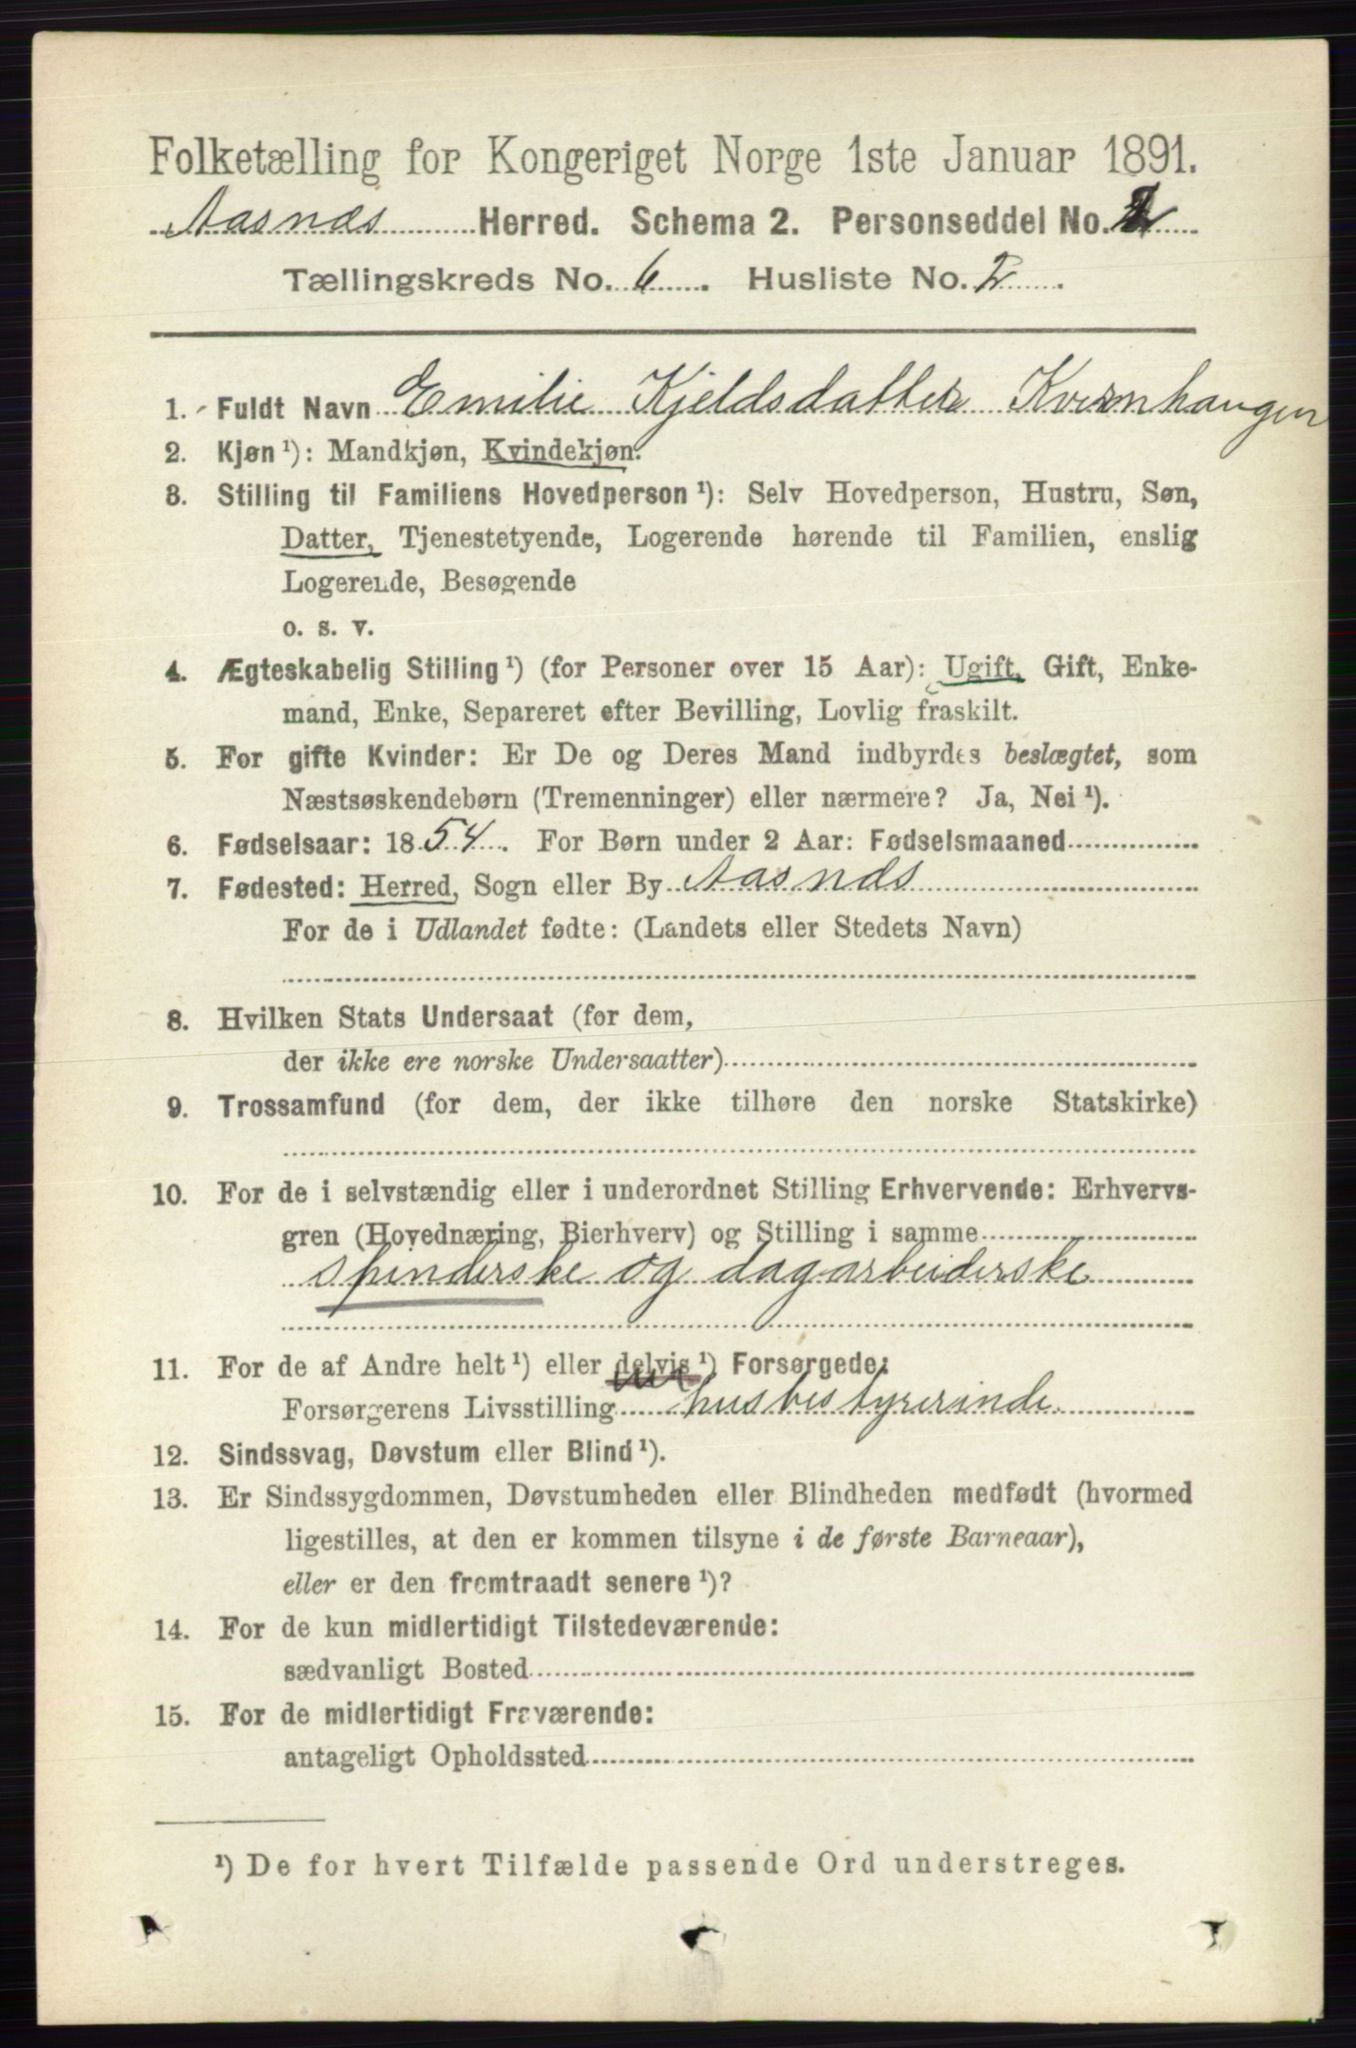 Folketælling for Kongeriget Norge 1ste Januar 1891.
Aasnæs Herred. Schema 2. Personseddel No. 2
Tællingskreds No. 6. Husliste No. 2.
1. Fuldt Navn Emilie Kjeldsdatter Kvernhaugen
2. Kjøn ¹): Mandkjøn, Kvindekjøn.
3. Stilling til Familiens Hovedperson ¹): Selv Hovedperson, Hustru, Søn,
Datter, Tjenestetyende, Logerende hørende til Familien, enslig
Logerende, Besøgende
o. s. v.
4. Ægteskabelig Stilling ¹) (for Personer over 15 Aar): Ugift, Gift, Enke-
mand, Enke, Separeret efter Bevilling, Lovlig fraskilt.
5. For gifte Kvinder: Er De og Deres Mand indbyrdes beslægtet, som
Næstsøskendebørn (Tremenninger) eller nærmere? Ja, Nei ¹).
6. Fødselsaar: 1854. For Børn under 2 Aar: Fødselsmaaned
7. Fødested: Herred, Sogn eller By Aasnæs
For de i Udlandet fødte: (Landets eller Stedets Navn)
8. Hvilken Stats Undersaat (for dem,
der ikke ere norske Undersaatter)
9. Trossamfund (for dem, der ikke tilhøre den norske Statskirke)
10. For de i selvstændig eller i underordnet Stilling Erhvervende: Erhvervs-
gren (Hovednæring, Bierhverv) og Stilling i samme
spinderske og dagarbeiderske
11. For de af Andre helt ¹) eller delvis ¹) Forsørgede:
Forsørgerens Livsstilling husbestyrerinde
12. Sindssvag, Døvstum eller Blind ¹).
13. Er Sindssygdommen, Døvstumheden eller Blindheden medfødt (hvormed
ligestilles, at den er kommen tilsyne i de første Barneaar),
eller er den fremtraadt senere ¹)?
14. For de kun midlertidigt Tilstedeværende:
sædvanligt Bosted
15. For de midlertidigt Fraværende:
antageligt Opholdssted
¹) De for hvert Tilfælde passende Ord understreges.